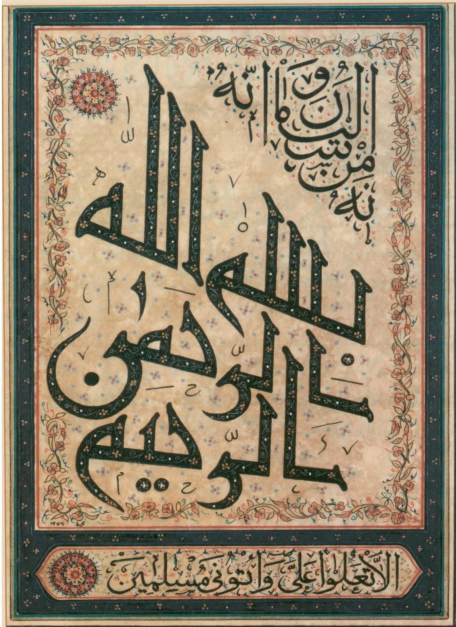 انه من سليمان وانه
بسم الله
الرحمن
الرحيم
الا تعلوا علىّ وأتونى مسلمين